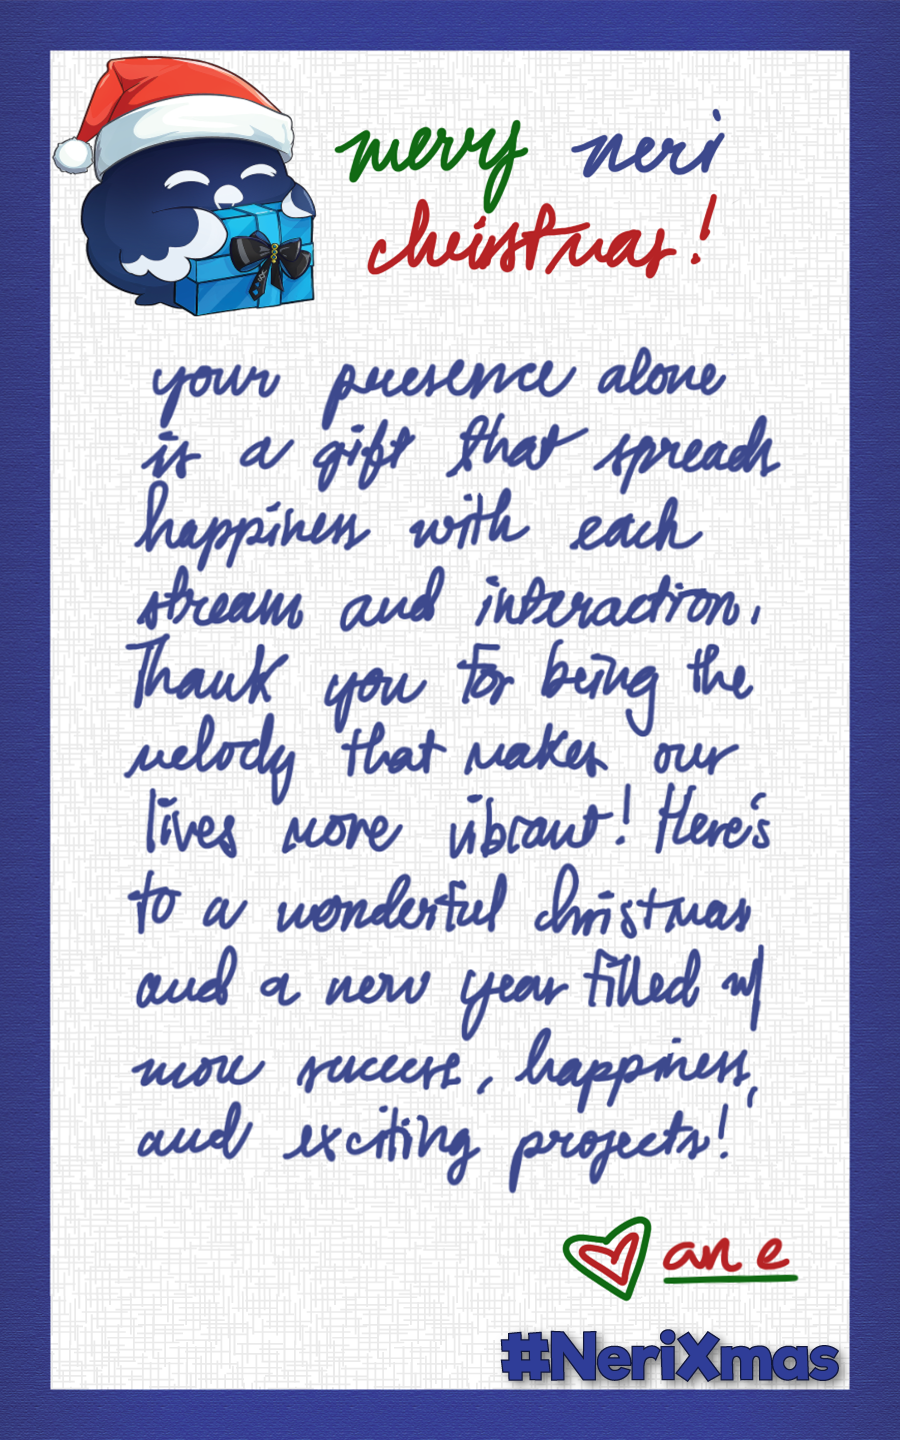 merry neri
christmas!
your presence alone
is a gift that spreads
happiness with each
stream and interaction.
Thank you for being the
melody that makes our
lives more vibrant! Here's
to a wonderful christmas
and a new year filled w/
more success, happiness,
and exciting projects!
ane
#NeriXmas